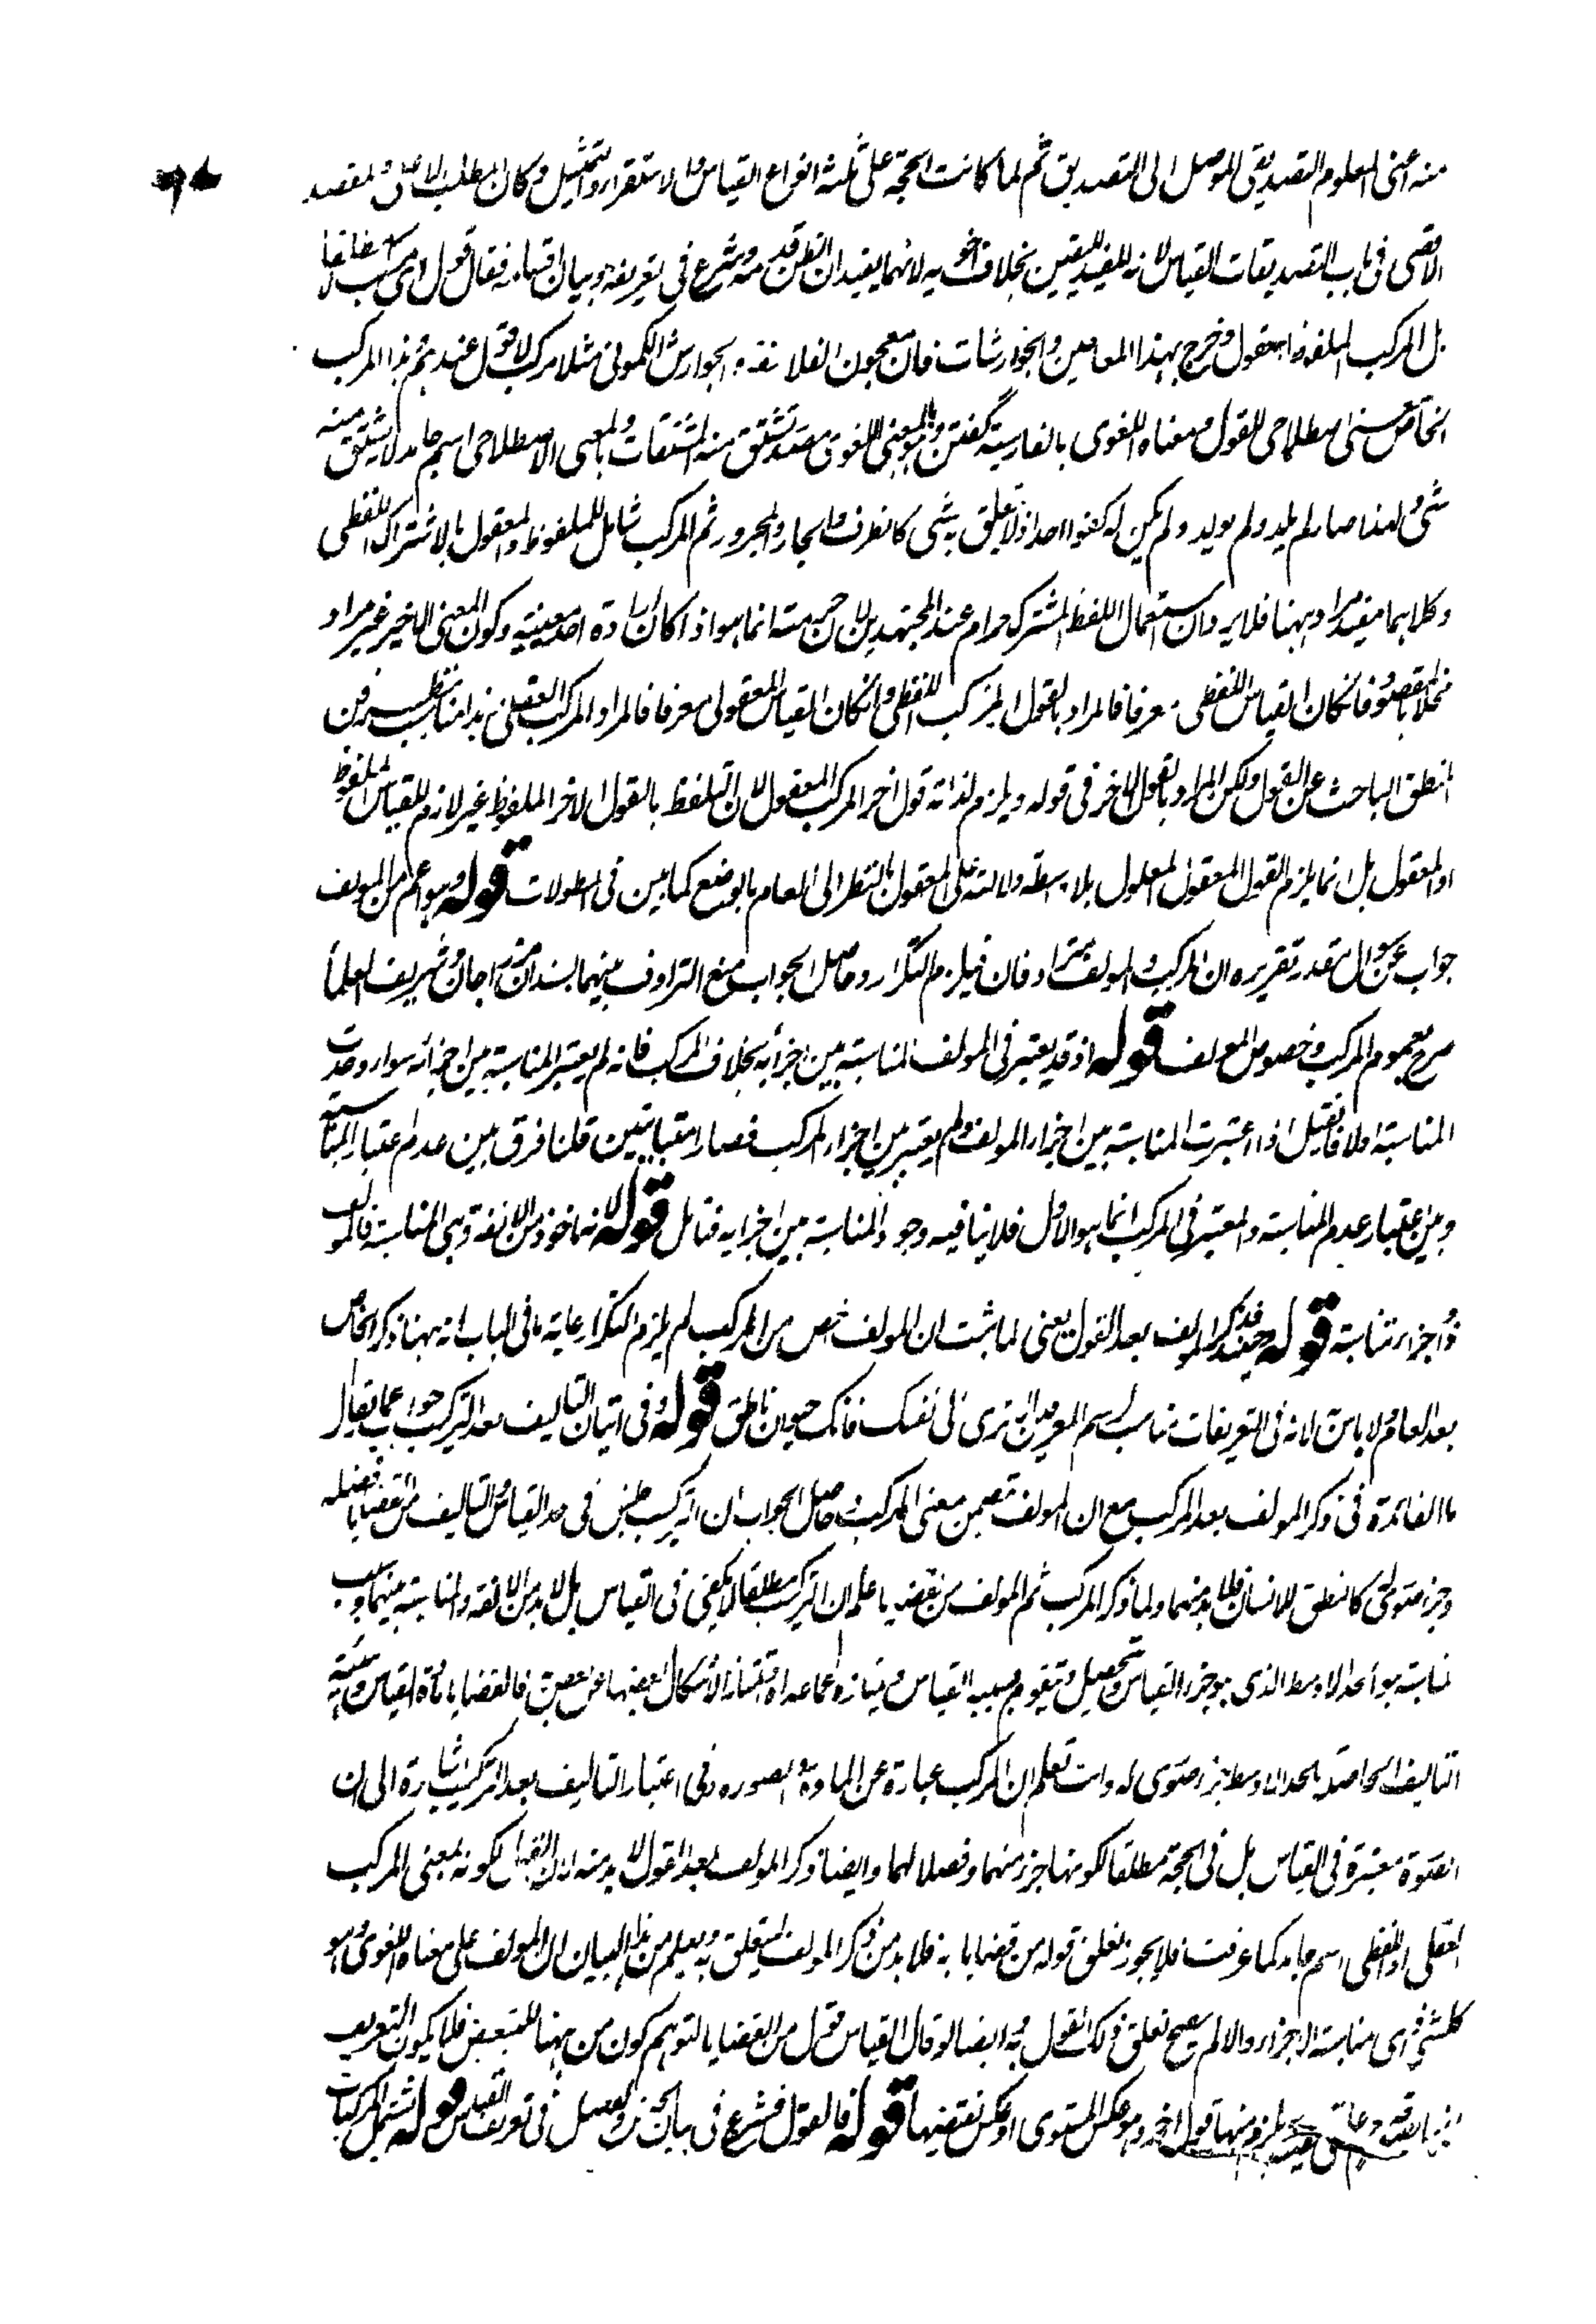 منه اعنی المعلوم التصدیقی الموصل الی التصدیق ثم لما کانت الحجة علی ثلثة انواع القیاس والاستقراء والتمثیل وکان المطلب الاعلی والمقصد
الاقصی فی باب التصدیقات القیاس لانه المفید للیقین بخلاف اخویه لانهما یفیدان الظن قدمه وشرع فی تعریفه وبیان اقسامه فقال قول ای مرکب مطلقا
بل المرکب الملفوظ او المعقول وخرج بهذا المعاجین والجوارشات فان معجون الفلاسفة والجوارش الکمونی مثلا مرکب لا قول عندهم ثم هذا المرکب
الخاص معنی اصطلاحی للقول ومعناه اللغوی بالفارسیة گفتن وبالمعنی اللغوی مصدر تشتق منه المشتقات وبالمعنی الاصطلاحی اسم جامد لا یشتق منه
شیٔ ولهذا صار لم یلد ولم یولد ولم یکن له کفوا احد اذ لا یتعلق به شیٔ کالظرف والجار والمجرور ثم المرکب شامل للملفوظ والمعقول بالاشتراک اللفظی
وکلاهما مفید مراد ههنا فلا یرد ان استعمال اللفظ المشترک حرام عند المجتهدین لان حرمته انما هو اذا کان ارادة احد معنییه وکون المعنی الاخیر غیر مراد
مخلا بالمقصود فان کان القیاس اللفظی معرفا فالمراد بالقول المرکب اللفظی وان کان القیاس المعقولی معرفا فالمراد المرکب العقلی هذا مناسب بنظر فن
المنطق الباحث عن القول ولکن المراد بالقول الاخر فی قوله ویلزم لذاته قول اخر المرکب المعقول لان التلفظ بالقول الاخر الملفوظ غیر لازم للقیاس الملفوظ
او المعقول بل انما یلزم القول المعقول المعلول بلا واسطة دلالته علی المعقول بالنظر الی العام بالوضع کما بین فی المطولات قوله وهو اعم من المولف
جواب عن سوال مقدر تقریره ان المرکب والمولف مترادفان فیلزم التکرار وحاصل الجواب منع الترادف بینهما بسند ان مرزاجان وشریف العلماء
صرح بعموم المرکب وخصوص المولف قوله اذ قد یعتبر فی المولف المناسبة بین اجزائه بخلاف المرکب فانه لم یعتبر المناسبة بین اجزائه سواء وجدت
المناسبة اولا فان قیل اذا اعتبرت المناسبة بین اجزاء المولف ولم یعتبر بین اجزاء المرکب فصارا متباینین قلنا فرق بین عدم اعتبار المناسبة
وبین اعتبار عدم المناسبة والمعتبر فی المرکب انما هو الاول فلا ینافیه وجود المناسبة بین اجزایه فتامل قوله لانه ماخوذ من الالفة وهی المناسبة فالمولف
ذو اجزاء متناسبة قوله حینئذ فذکر المولف بعد القول یعنی لما ثبت ان المولف اخص من المرکب لم یلزم التکرار غایة ما فی الباب انه ههنا ذکر الخاص
بعد العام ولا باس لانه فی التعریفات الی نفسک فانک حیوان ناطق قوله وفی اتیان التالیف بعد الترکیب جواب عما یقال
ما الفائدة فی ذکر المولف بعد المرکب مع ان المولف تضمن معنی المرکب وحاصل الجواب ان الترکیب جنس فی حد القیاس والتالیف من القضایا فصله
وجزء صوری کالنطق للانسان فلابد منهما ولما ذکر المرکب ثم المولف من قضایا علم ان الترکیب مطلقا لا یکفی فی القیاس بل لابد من الالفة والمناسبة بینهما وسبب
المناسبة هو الحد الاوسط الذی هو جزء القیاس وتحصیل وتقوم بسببه القیاس وامتیازه عما عداه وتمتاز الاشکال بعضها عن بعض فالقضایا مادة القیاس وهیئة
التالیف الحاصلة بالحد الاوسط جزء صوری له وانت تعلم ان المرکب عبارة عن المادة والصورة وفی اعتبار التالیف بعد الترکیب اشارة الی ان
الصورة معتبرة فی القیاس بل فی الحجة مطلقا لکونها جزء منهما وفصلا لهما وایضا ذکر المولف بعد القول لابد منه لان القول لکونه بمعنی المرکب
العقلی او اللفظی اسم جامد کما عرفت فلا یجوز تعلق قوله من قضایا به فلابد من ذکر المولف لیتعلق به ویعلم من هذا البیان ان المولف علی معناه اللغوی وهو
ای مناسبة الاجزاء والا لم یصح تعلق ذلک القول به ایضا لو قال القیاس قول من القضایا لتوهم کون من ههنا للتبعیض فلا یکون التعریف
یلزم منها قول اخر وهو عکس المستوی او عکس نقیضها قوله فالقول فشرع فی بیان الجنس والفصل فی تعریف القیاس قوله تشمل المرکبات